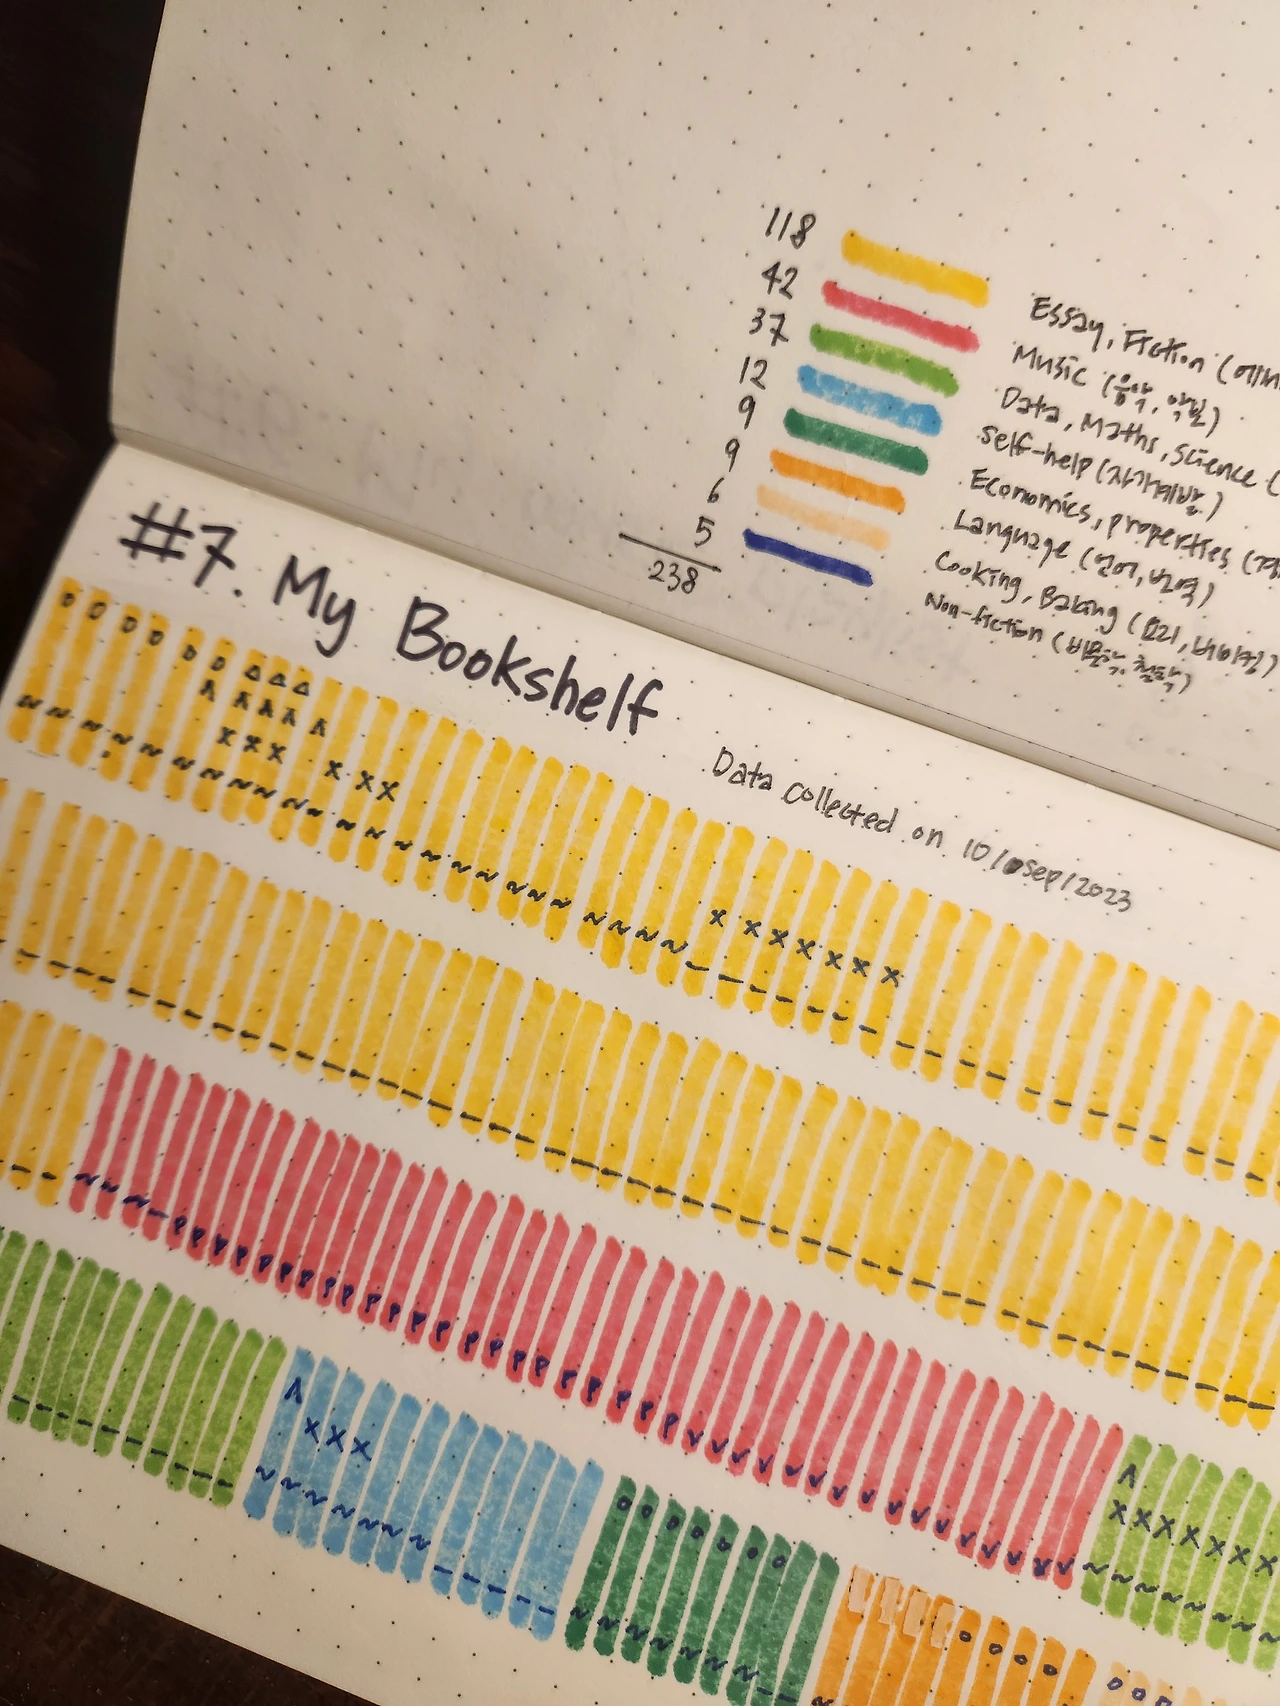 118
42
37
12
9
9
6
5
238
Essay, Fiction (에세
Music (음악, 악보)
Data, Maths, Science (
Self-help (자기계발)
Economics, properties (경
Language (언어, 번역)
Cooking, Baking (요리, 베이킹)
Non-fiction (비문학, 철학)
#7. My Bookshelf
Data collected on 10/sep/2023